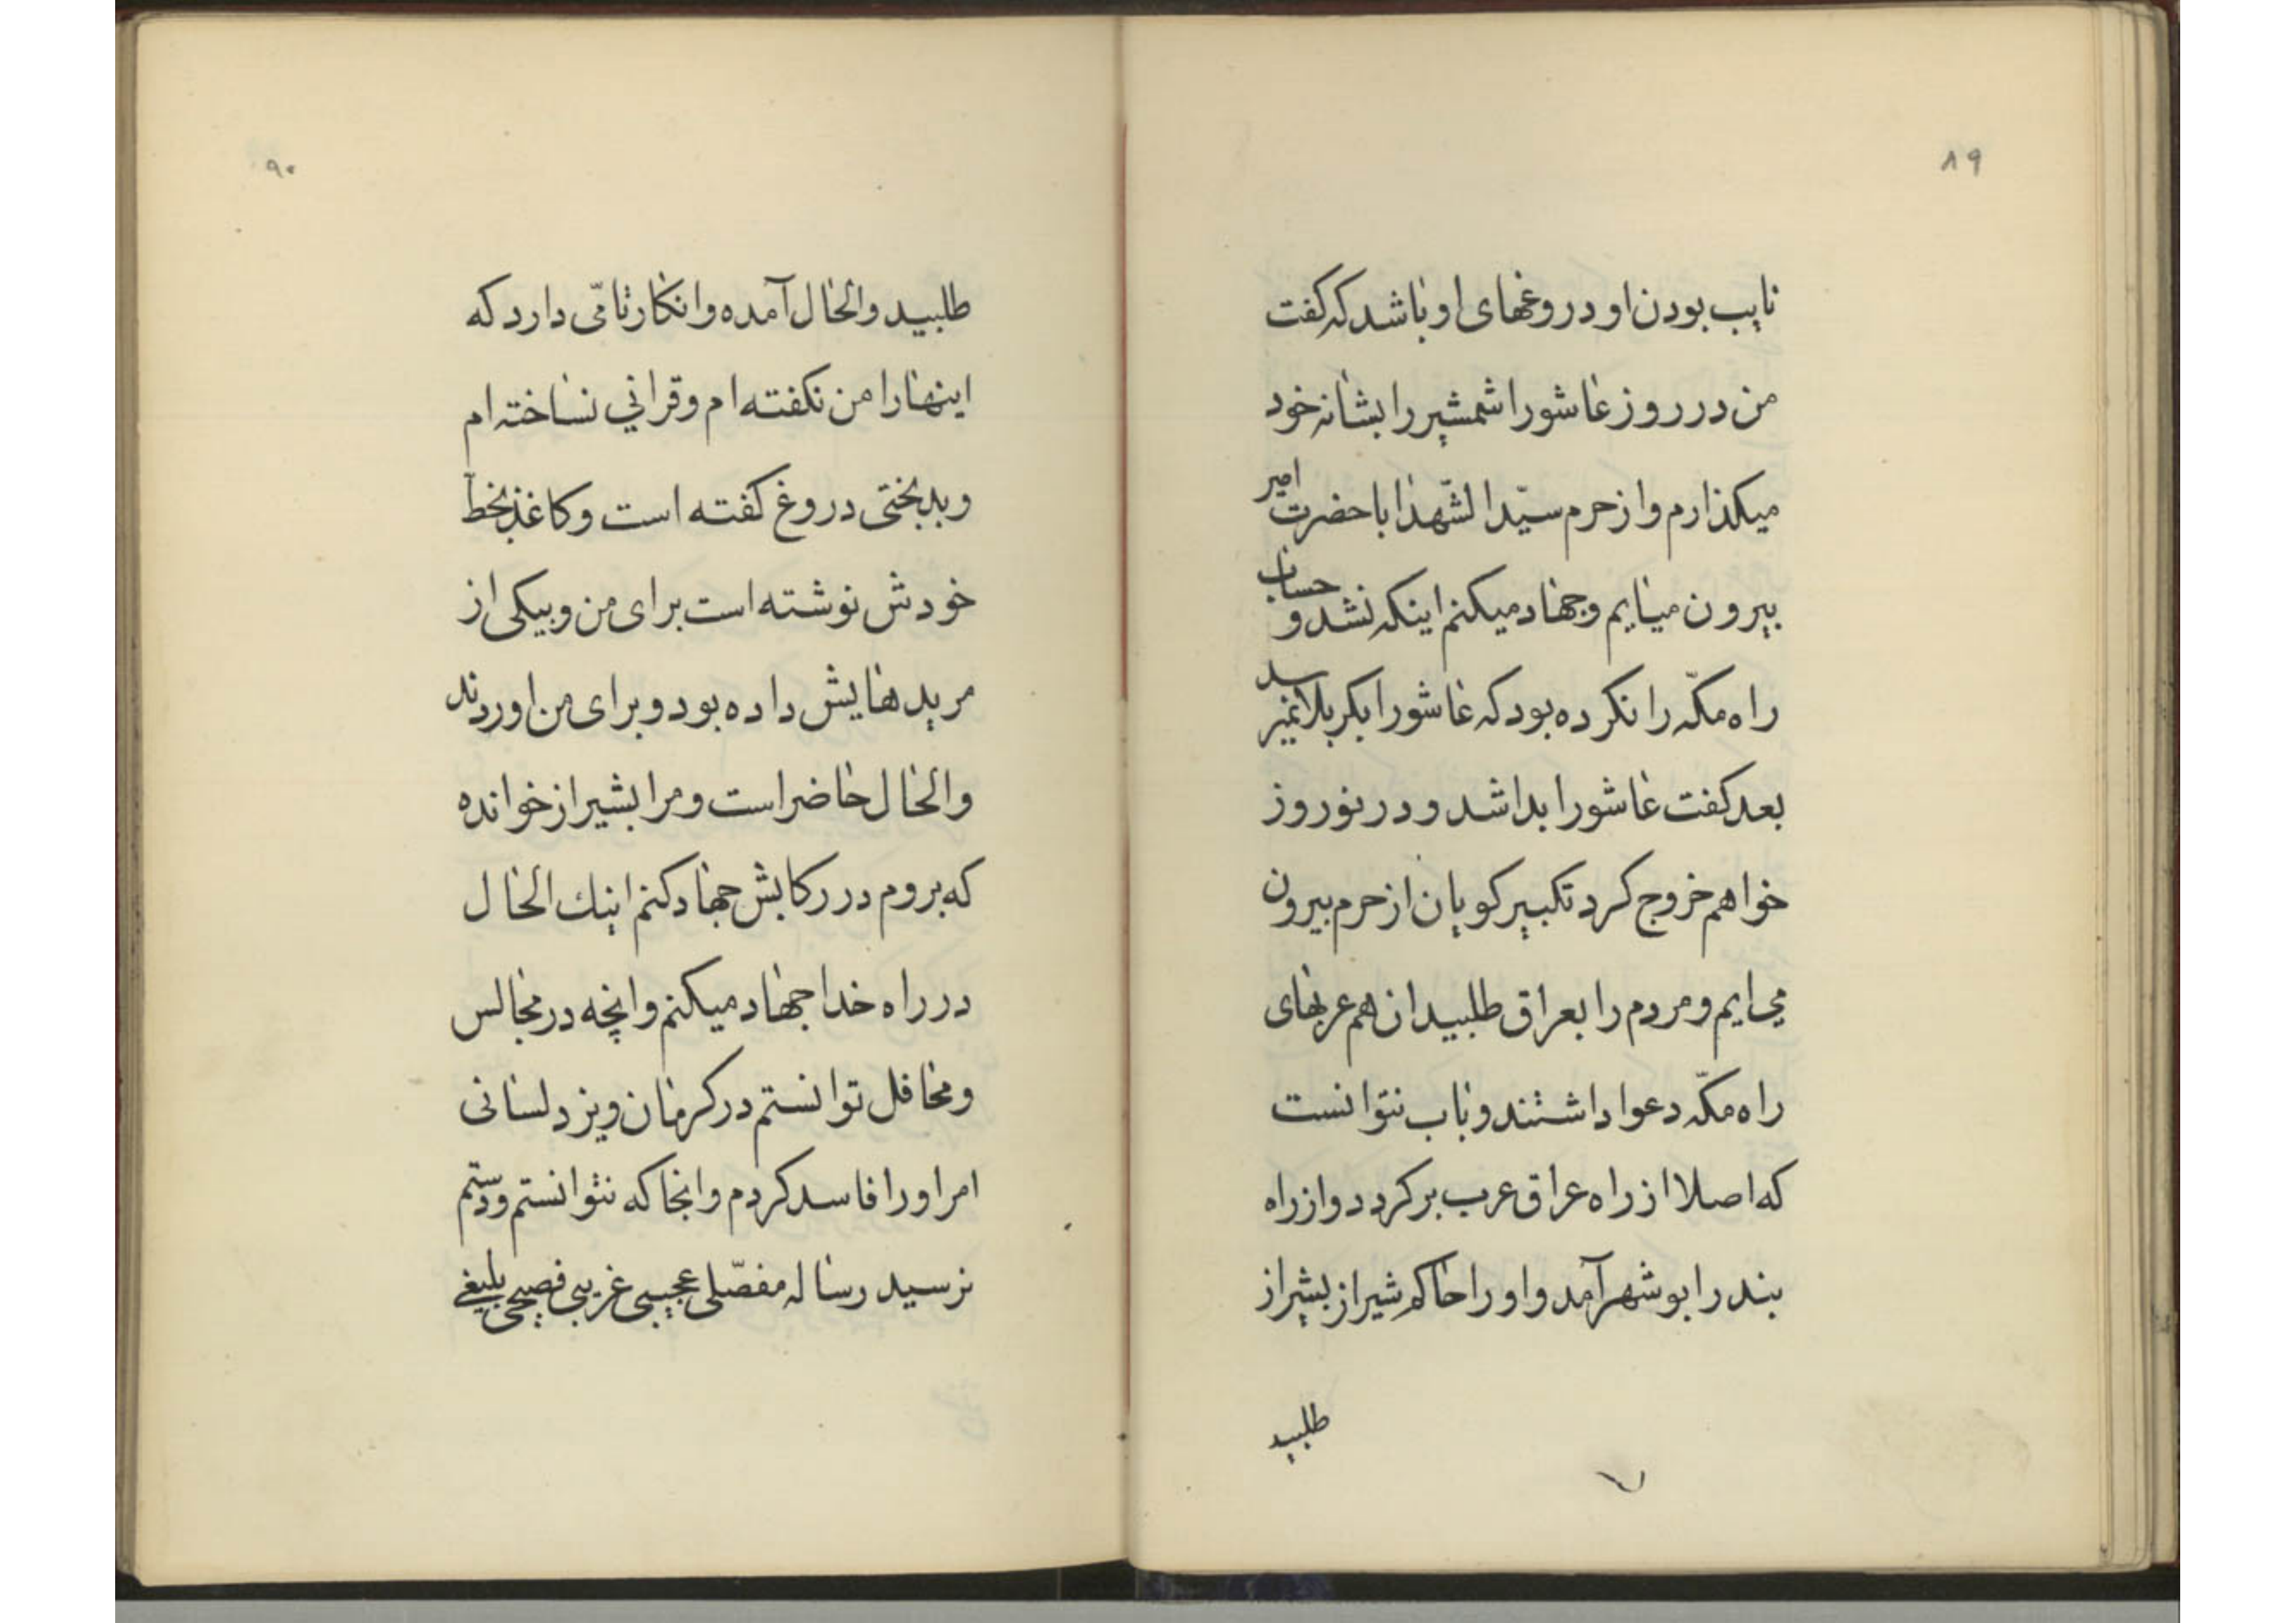 ۸۹
نایب بودن او دروغهای او باشد که کفت
من در روز عاشورا شمشیر را بشانه خود
میکذارم و از حرم سیّد الشّهدا با حضرت امیر
بیرون میایم و جهاد میکنم اینکه نشد و حساب
راه مکّه را نکرده بود که عاشورا بکربلا نمیرسد
بعد کفت عاشورا بدا شد و در نوروز
خواهم خروج کرد تکبیر کویان از حرم بیرون
می ایم و مردم را بعراق طلبید ان هم عربهای
راه مکّه دعوا داشتند و باب نتوانست
که اصلا از راه عراق عرب برکردد و از راه
بندر ابوشهر آمد و او را حاکم شیراز بشیراز
طلبید
۹۰
طلبید و الحال آمده و انکار تامّی دارد که
اینها را من نکفته ام و قرانی نساخته ام
و بدبختی دروغ کفته است و کاغذ بخط
خودش نوشته است برای من و بیکی از
مریدهایش داده بود و برای من اوردند
و الحال حاضر است و مرا بشیراز خوانده
که بروم در رکابش جهاد کنم اینك الحال
در راه خدا جهاد میکنم و انچه در مجالس
و محافل توانستم در کرمان و یزد لسانی
امر او را فاسد کردم و انجا که نتوانستم و دستم
نرسید رساله مفصّلی عجیبی غریبی فصیحی بلیغی